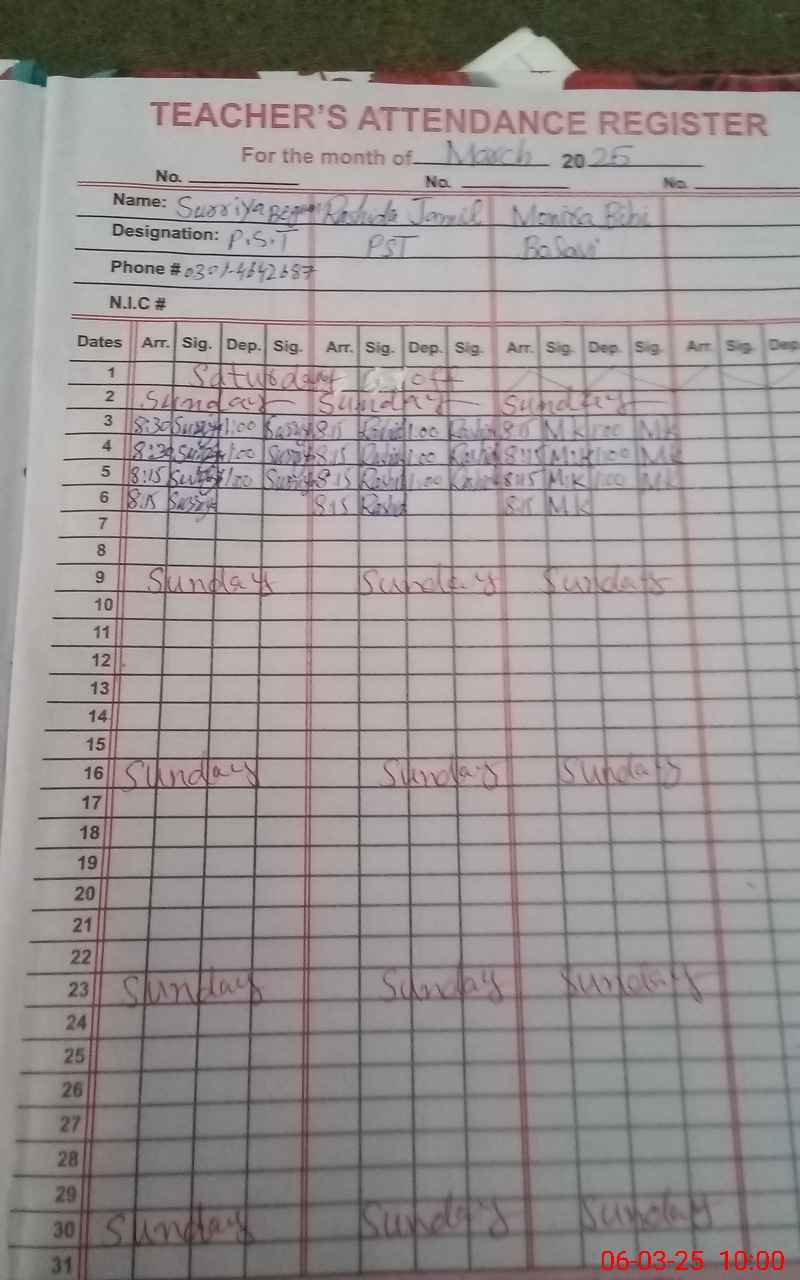 TEACHER'S ATTENDANCE REGISTER
For the month of March 2025
No. No. No.
Name: Surriya Begum Rashida Jamil Monira Bibi
Designation: P.S.T PST
Phone # 0301-4642687
N.I.C #
Dates Arr. Sig. Dep. Sig. Arr. Sig. Dep. Sig. Arr. Sig. Dep. Sig. Arr. Sig. Dep
1 Saturday off
2 Sunday Sunday Sunday
3 8:30 1:00 8:15 1:00 8:15 M.K 1:00 M.K
4 8:30 1:00 8:15 1:00 8:15 M.K 1:00 M.K
5 8:15 1:00 8:15 1:00 8:15 M.K 1:00 M.K
6 8:15 8:15 8:15 M.K
7
8
9 Sunday Sunday Sunday
10
11
12
13
14
15
16 Sunday Sunday Sunday
17
18
19
20
21
22
23 Sunday Sunday Sunday
24
25
26
27
28
29
30 Sunday Sunday Sunday
31
06-03-25 10:00